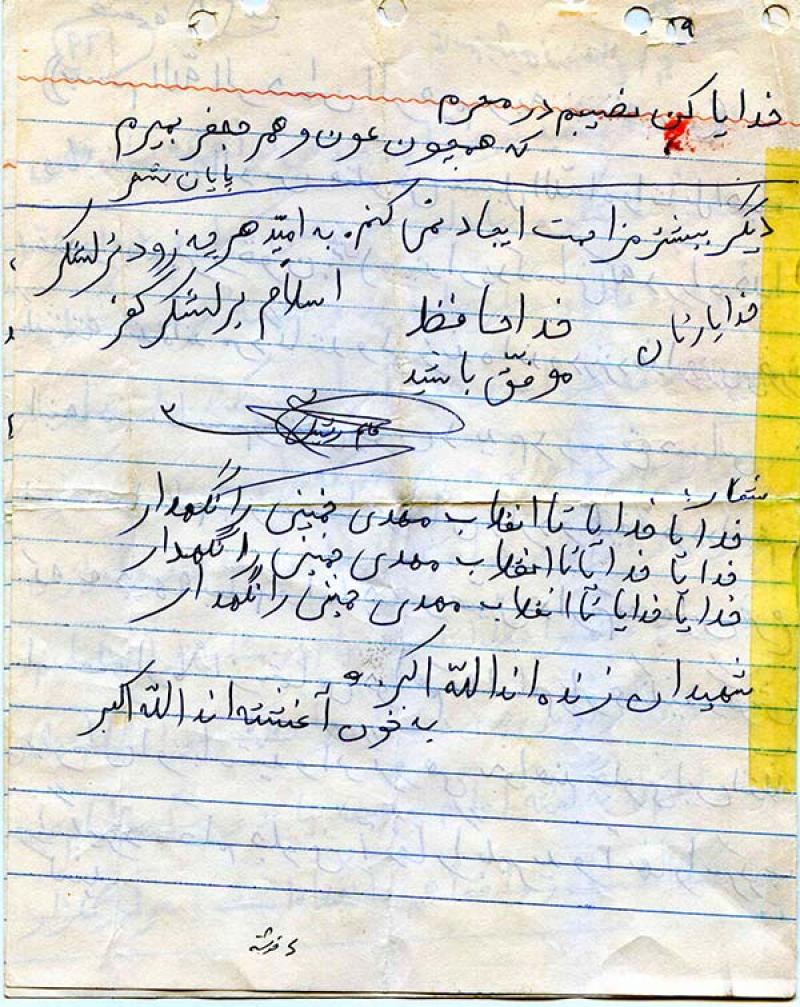 ۲۹
خدایا کن نصیبم در محرم
که همچون عون و هم جعفر بمیرم
پایان شعر
دیگر بیشتر مزاحمت ایجاد نمی کنم. به امید هر چه زودتر لشکر
اسلام بر لشکر کفر
خدایارتان خداحافظ
موفّق باشید
شعار:
خدایا خدایا تا انقلاب مهدی خمینی را نگهدار
خدایا خدایا تا انقلاب مهدی خمینی را نگهدار
خدایا خدایا تا انقلاب مهدی خمینی را نگهدار
شهیدان زنده اند الله اکبر و
به خون آغشته اند الله اکبر